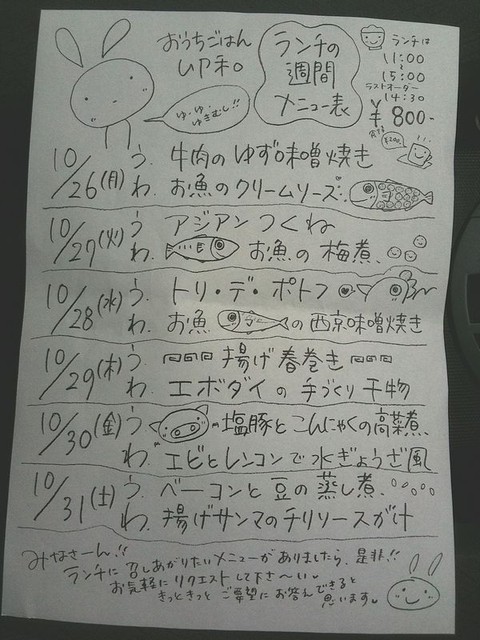 おうちごはん
ランチの
週間
メニュー表
ランチは
11:00
15:00
ラストオーダー
14:30
¥800-
ゆ・ゆ・
ゆきむし!!
10/26(月) う. 牛肉のゆず味噌焼き
わ. お魚のクリームソース
10/27(火) う. アジアンつくね
わ. お魚の梅煮
10/28(水) う. トリ・デ・ポトフ
わ. お魚の西京味噌焼き
10/29(木) う. 揚げ春巻き
わ. エボダイの手づくり干物
10/30(金) う. 塩豚とこんにゃくの高菜煮
わ. エビとレンコンで水ぎょうざ風
10/31(土) う. ベーコンと豆の蒸し煮
わ. 揚げサンマのチリソースがけ
みなさーん!!
ランチに召しあがりたいメニューがありましたら、是非!!
お気軽にリクエストして下さ〜い
きっときっとご要望にお答えできると
思います